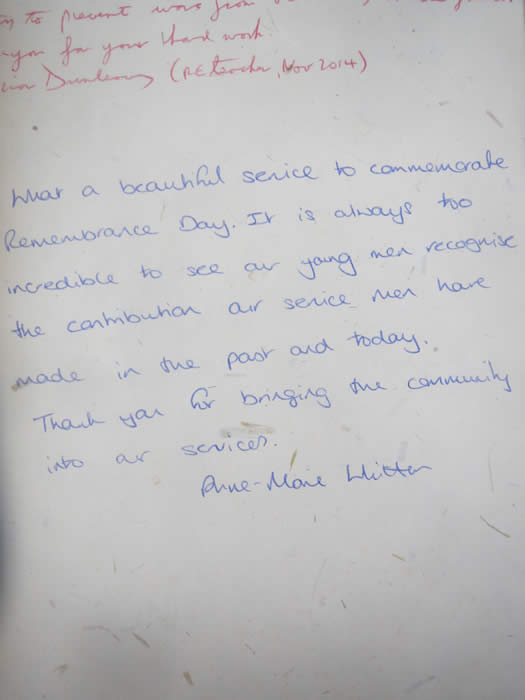 to prevent wars from
you for your hard work
(RE teacher, Nov 2014)
What a beautiful service to commemorate
Remembrance Day. It is always too
incredible to see our young men recognise
the contribution our service men have
made in the past and today.
Thank you for bringing the community
into our services.
Anne-Marie